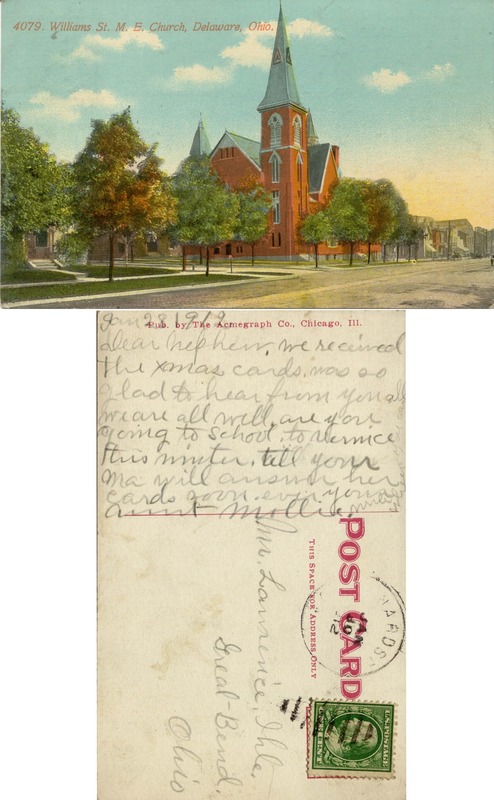 4079. Williams St. M. E. Church, Delaware, Ohio.
Jan 23 1912
Pub. by The Acmegraph Co., Chicago, Ill.
Dear nephew, we received
the xmas cards, was so
glad to hear from you all
we are all well, are you
going to school, to
this winter, tell your
Ma will answer her
cards soon, ever your
aunt Mollie
POST CARD
THIS SPACE FOR ADDRESS ONLY
Mr. Lawrence, Ihle,
Great-Bend,
Ohio
U.S. POSTAGE